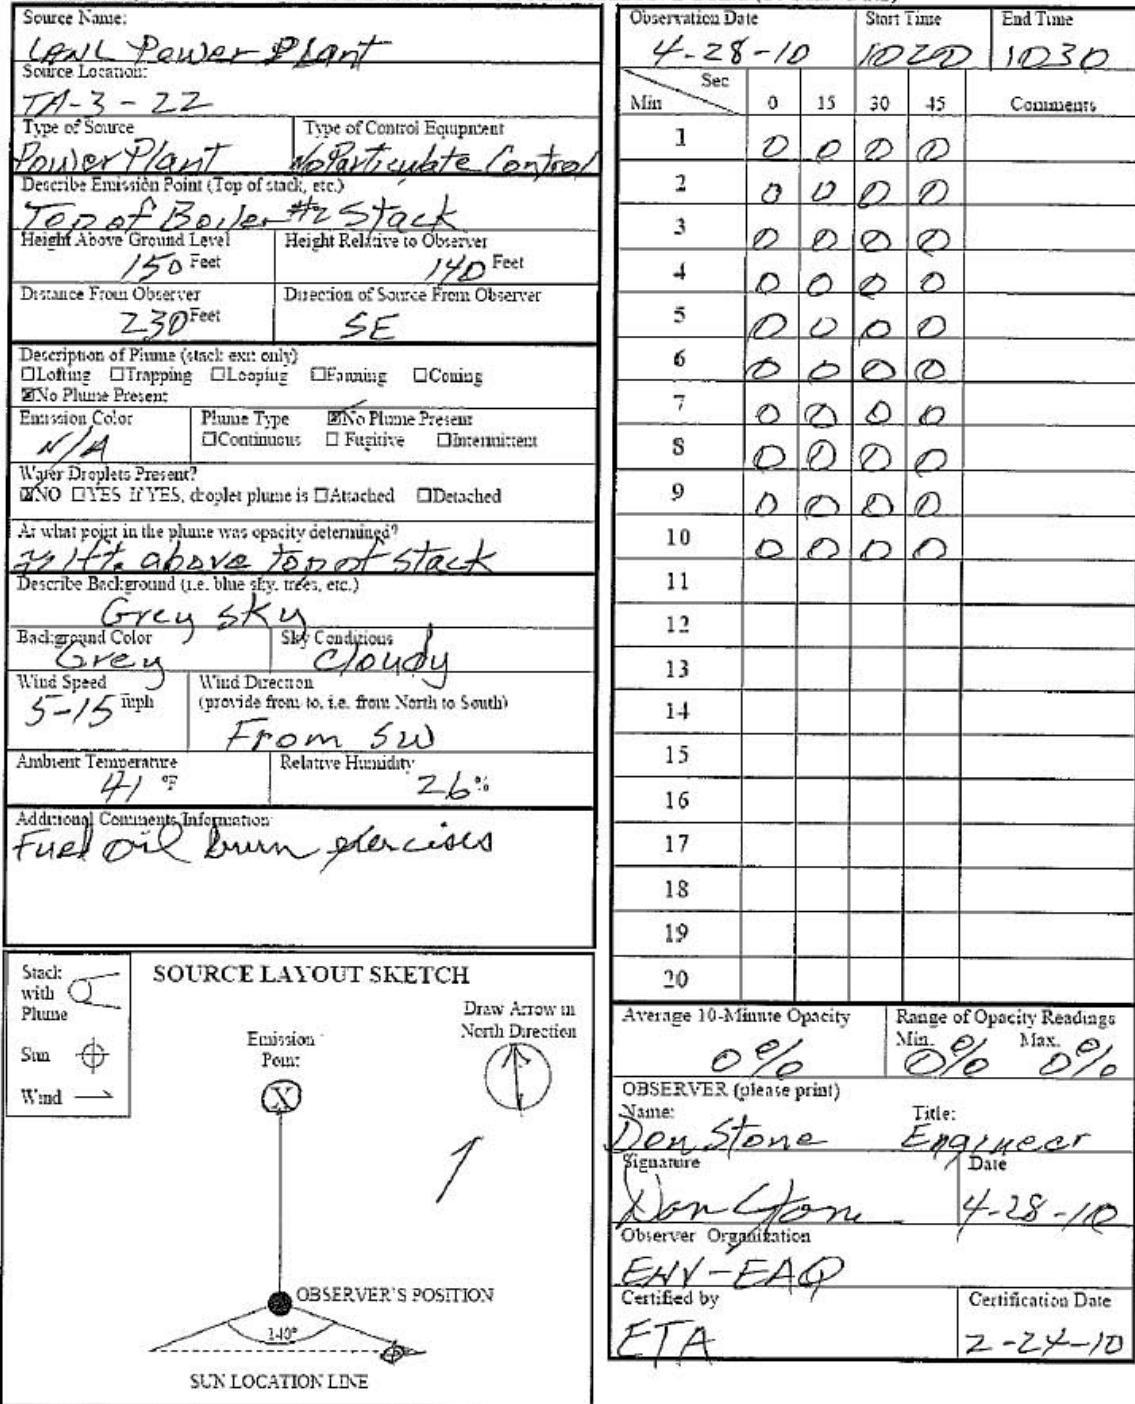 Source Name:
LANL Power Plant
Source Location:
TA-3-22
Type of Source Type of Control Equipment
Power Plant No Particulate Control
Describe Emission Point (Top of stack, etc.)
Top of Boiler #2 Stack
Height Above Ground Level Height Relative to Observer
150 Feet 140 Feet
Distance From Observer Direction of Source From Observer
230 Feet SE
Description of Plume (stack exit only)
☐Lofting ☐Trapping ☐Looping ☐Fanning ☐Coning
☒No Plume Present
Emission Color Plume Type ☒No Plume Present
N/A ☐Continuous ☐ Fugitive ☐Intermittent
Water Droplets Present?
☒NO ☐YES If YES, droplet plume is ☐Attached ☐Detached
At what point in the plume was opacity determined?
1 ft. above top of stack
Describe Background (i.e. blue sky, trees, etc.)
Grey sky
Background Color Sky Conditions
Grey Cloudy
Wind Speed Wind Direction
5-15 mph (provide from to, i.e. from North to South)
From SW
Ambient Temperature Relative Humidity
41 °F 26%
Additional Comments Information
Fuel oil burn exercises
Stack with Plume
Sun
Wind
SOURCE LAYOUT SKETCH
Draw Arrow in North Direction
Emission Point
X
OBSERVER'S POSITION
140°
SUN LOCATION LINE
Observation Date Start Time End Time
4-28-10 1020 1030
Sec
Min 0 15 30 45 Comments
1 0 0 0 0
2 0 0 0 0
3 0 0 0 0
4 0 0 0 0
5 0 0 0 0
6 0 0 0 0
7 0 0 0 0
8 0 0 0 0
9 0 0 0 0
10 0 0 0 0
11
12
13
14
15
16
17
18
19
20
Average 10-Minute Opacity Range of Opacity Readings
0% Min. 0% Max. 0%
OBSERVER (please print)
Name: Title:
Don Stone Engineer
Signature Date
Don Stone 4-28-10
Observer Organization
ENV-EAQ
Certified by Certification Date
ETA 2-24-10